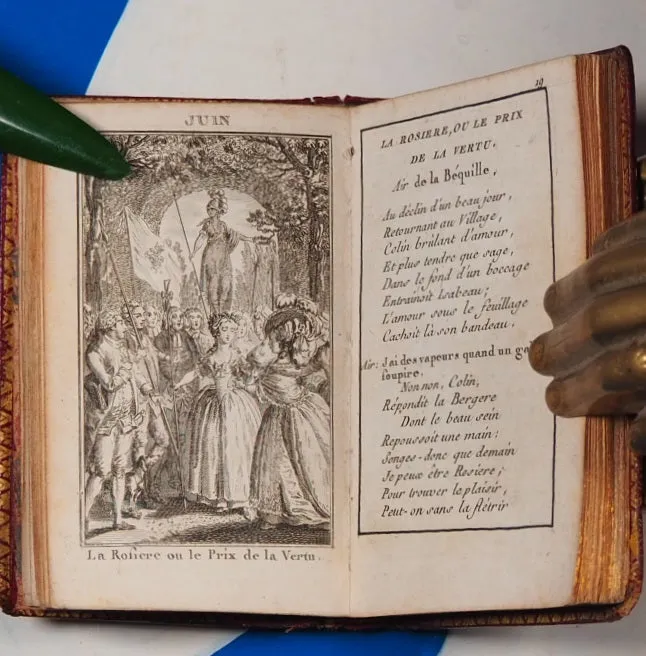 JUIN
La Rosiere ou le Prix de la Vertu.
19
LA ROSIERE, OU LE PRIX
DE LA VERTU.
Air de la Béquille,
Au déclin d'un beau jour,
Retournant au Village,
Colin brûlant d'amour,
Et plus tendre que sage,
Dans le fond d'un boccage
Entrainoit Isabeau;
L'amour sous le feuillage
Cachoit là son bandeau.
Air: J'ai des vapeurs quand un
soupire.
Non non, Colin,
Répondit la Bergere
Dont le beau sein
Repoussoit une main:
Songes-donc que demain
Je peux être Rosiere;
Pour trouver le plaisir,
Peut-on sans la flétrir